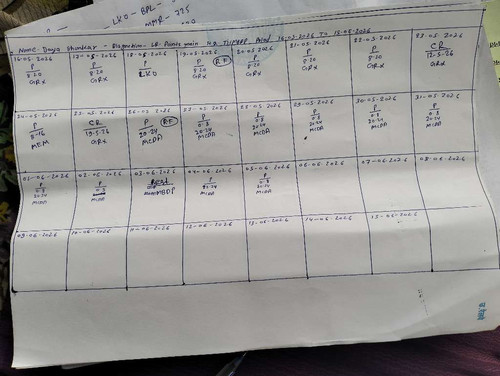 LKO - BPL -
MMR - 225
Name - Daya Shankar -
16-05-2026
P
8-20
GRX
17-05-2026
P
8-20
GRX
18-05-2026
P
LKO
19-05-2026
P
8-20
GRX
RF
20-05-2026
P
8-20
GRX
21-05-2026
P
8-20
GRX
22-05-2026
P
8-20
GRX
23-05-2026
CR
12-5-26
GRX
24-05-2026
P
8-16
MEM
25-05-2026
CR
19-5-26
GRX
26-05-2026
P
20-24
MCDA
RF
27-05-2026
P
0-8
20-24
MCDA
28-05-2026
P
0-8
20-24
MCDA
29-05-2026
P
0-8
20-24
MCDA
30-05-2026
P
0-8
20-24
MCDA
31-05-2026
P
0-8
20-24
MCDA
01-06-2026
P
0-8
20-24
MCDA
02-06-2026
P
0-8
MCDA
03-06-2026
Rest
04-06-2026
P
20-24
MCDA
05-06-2026
P
0-8
20-24
MCDA
06-06-2026
07-06-2026
08-06-2026
09-06-2026
10-06-2026
11-06-2026
12-06-2026
13-06-2026
14-06-2026
15-06-2026